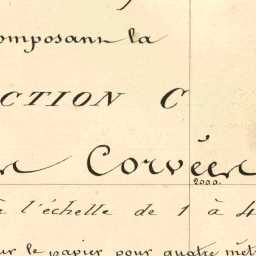 omposant la
CTION C
Corvée
2000.
l'échelle de 1 à 4
ur le papier pour quatre mèt